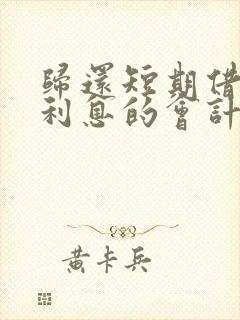 歸還短期借
利息的會計
黃卡兵